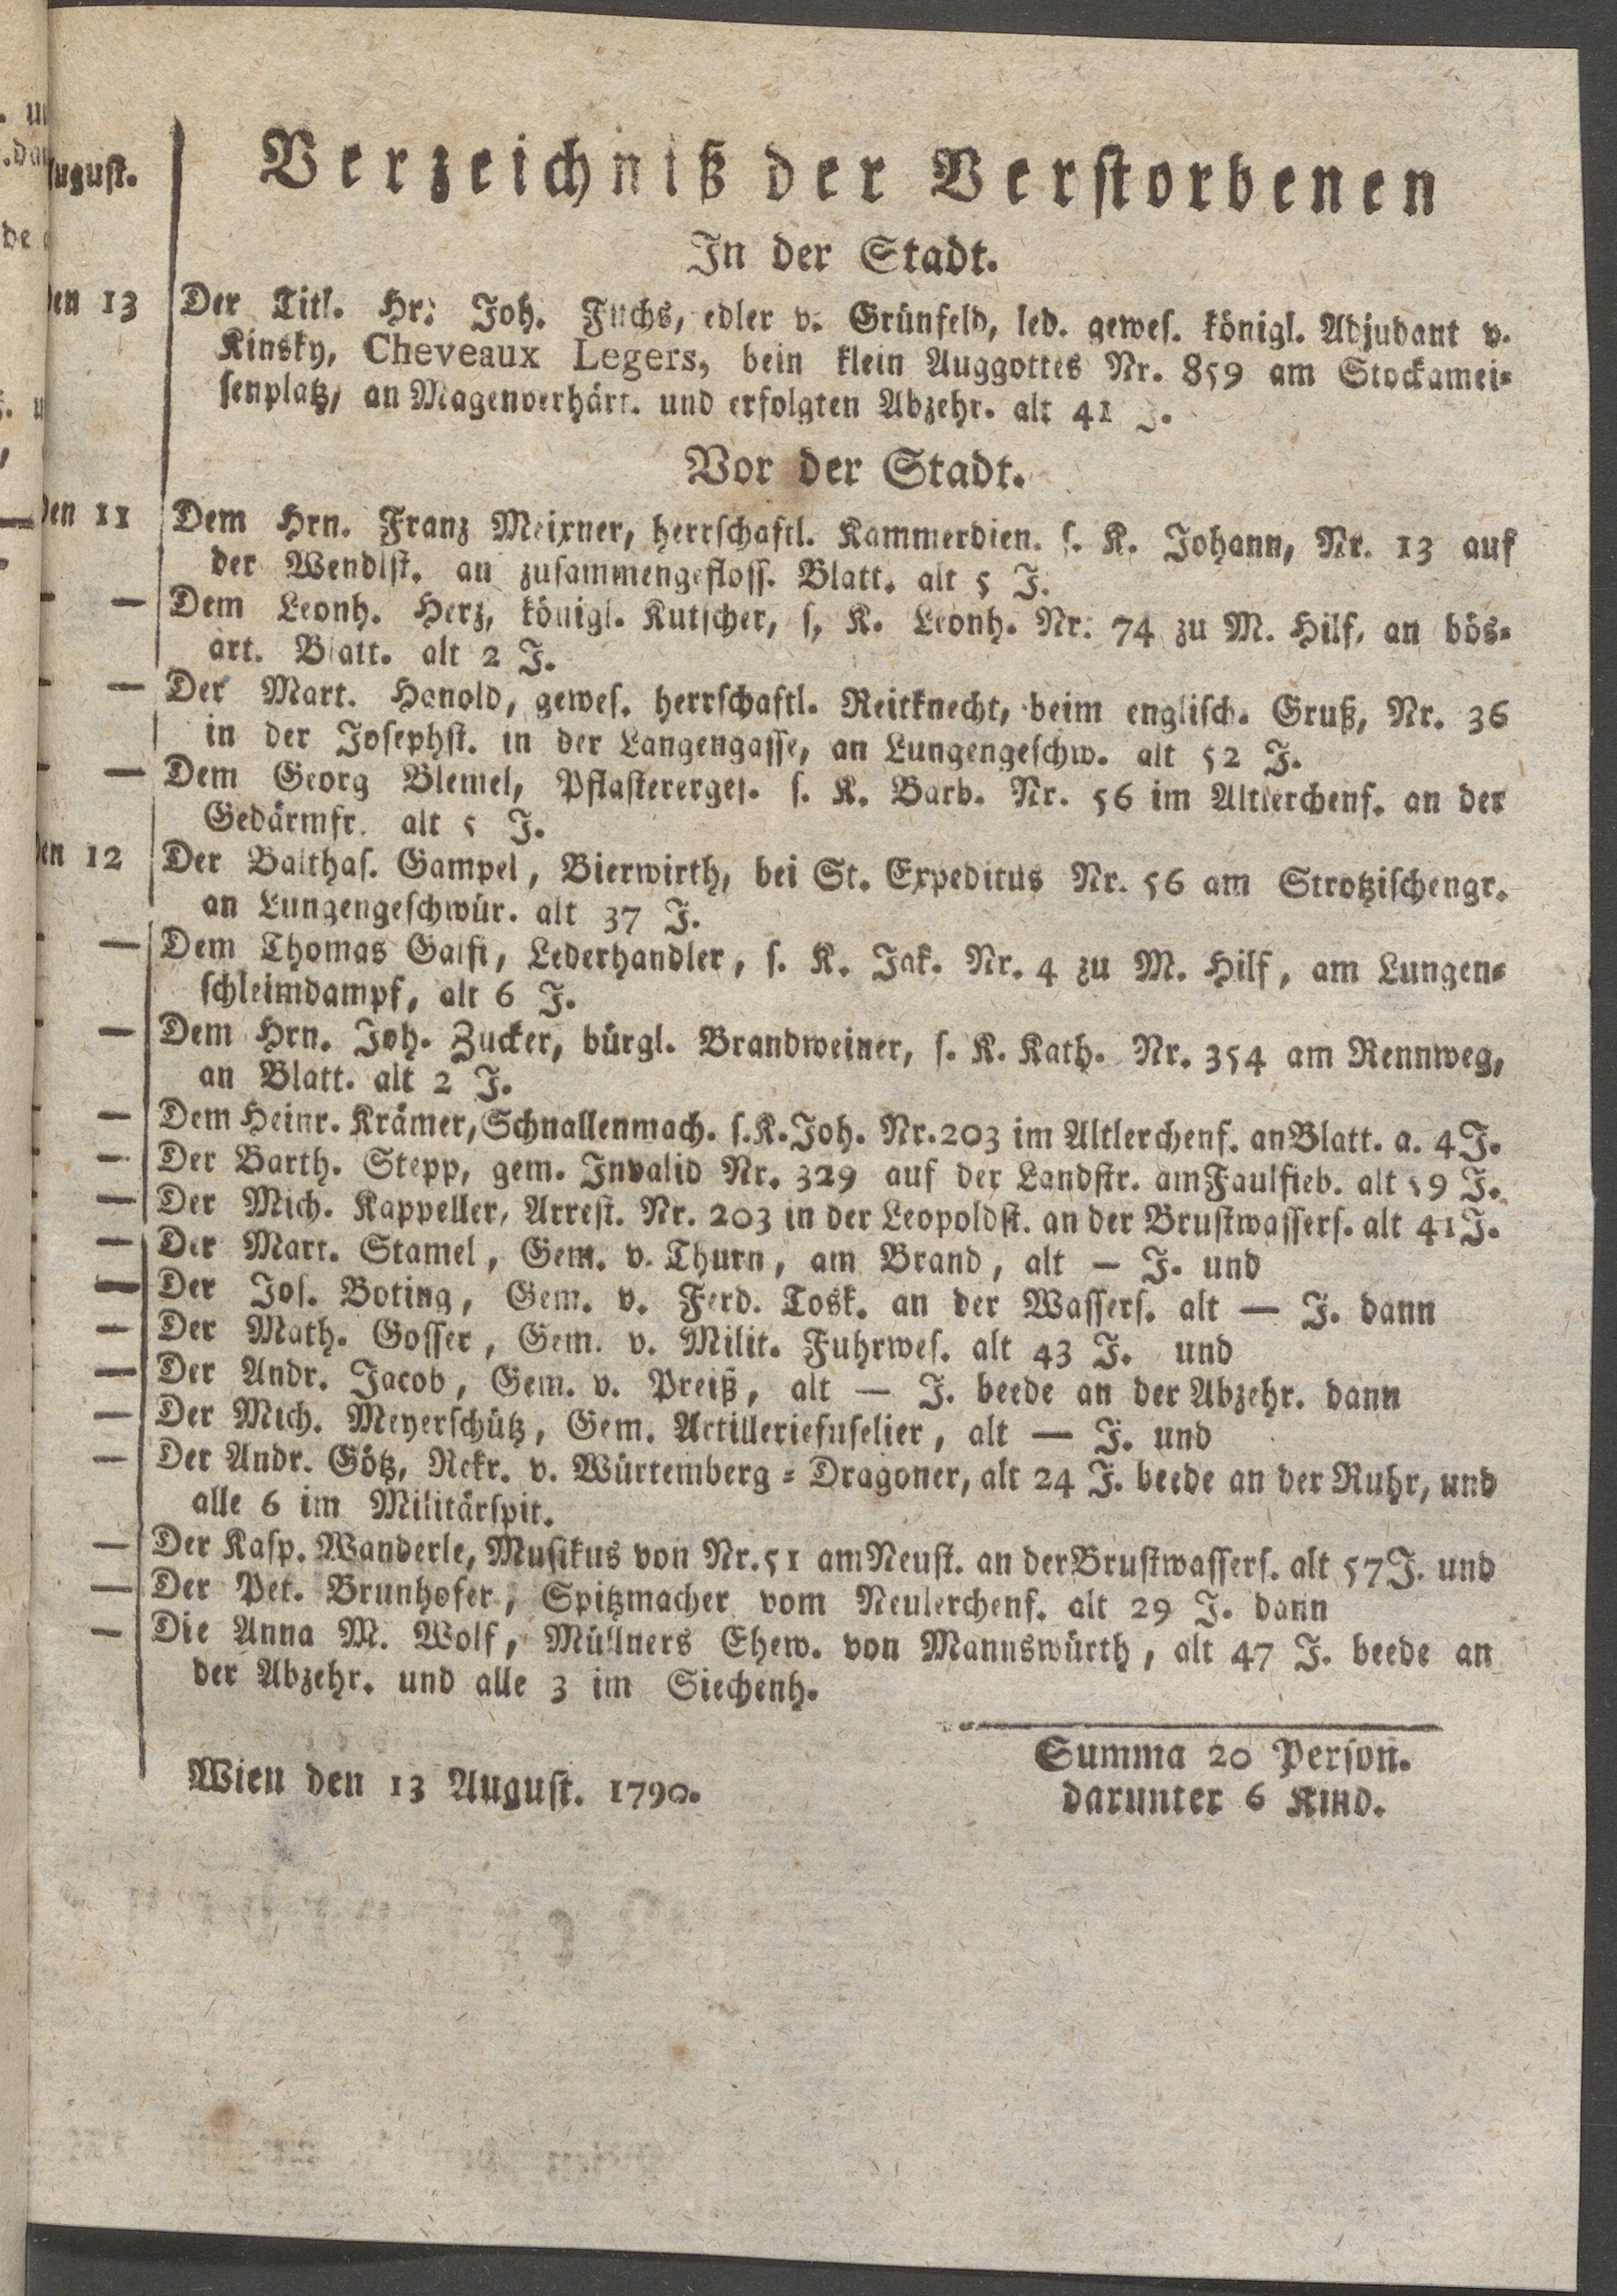 August.
Verzeichniß der Verstorbenen
In der Stadt.
den 13 Der Titl. Hr. Joh. Fuchs, edler v. Grünfeld, led. gewes. königl. Adjudant v.
Kinsky, Cheveaux Legers, bein klein Auggottes Nr. 859 am Stockamei=
senplatz, an Magenverhärt. und erfolgten Abzehr. alt 41 J.
Vor der Stadt.
den 11 Dem Hrn. Franz Meixner, herrschaftl. Kammerdien. s. K. Johann, Nr. 13 auf
der Wendlst. an zusammengefloss. Blatt. alt 5 J.
- — Dem Leonh. Herz, königl. Kutscher, s, K. Leonh. Nr. 74 zu M. Hilf, an bös=
art. Blatt. alt 2 J.
- — Der Mart. Hanold, gewes. herrschaftl. Reitknecht, beim englisch. Gruß, Nr. 36
in der Josephst. in der Langengasse, an Lungengeschw. alt 52 J.
- — Dem Georg Blemel, Pflasterergei. s. K. Barb. Nr. 56 im Altlerchenf. an der
Gedärmfr. alt 5 J.
den 12 Der Balthas. Gampel, Bierwirth, bei St. Expeditus Nr. 56 am Strotzischengr.
an Lungengeschwür. alt 37 J.
- — Dem Thomas Galfi, Lederhandler, s. K. Jak. Nr. 4 zu M. Hilf, am Lungen=
schleimdampf, alt 6 J.
- — Dem Hrn. Joh. Zucker, bürgl. Brandweiner, s. K. Kath. Nr. 354 am Rennweg,
an Blatt. alt 2 J.
- — Dem Heinr. Krämer, Schnallenmach. s. K. Joh. Nr. 203 im Altlerchenf. an Blatt. a. 4 J.
- — Der Barth. Stepp, gem. Invalid Nr. 329 auf der Landstr. am Faulfieb. alt 59 J.
- — Der Mich. Kappeller, Arrest. Nr. 203 in der Leopoldst. an der Brustwassers. alt 41 J.
- — Der Mart. Stamel, Gem. v. Thurn, am Brand, alt — J. und
- — Der Jos. Boting, Gem. v. Ferd. Tosk. an der Wassers. alt — J. dann
- — Der Math. Gosser, Gem. v. Milit. Fuhrwes. alt 43 J. und
- — Der Andr. Jacob, Gem. v. Preiß, alt — J. beede an der Abzehr. dann
- — Der Mich. Meyerschütz, Gem. Artilleriefuselier, alt — J. und
- — Der Andr. Götz, Rekr. v. Würtemberg = Dragoner, alt 24 J. beede an der Ruhr, und
alle 6 im Militärspit.
— Der Kasp. Wanderle, Musikus von Nr. 51 am Neust. an der Brustwassers. alt 57 J. und
— Der Pet. Brunhofer, Spitzmacher vom Neulerchenf. alt 29 J. dann
— Die Anna M. Wolf, Müllners Ehew. von Mannswürth, alt 47 J. beede an
der Abzehr. und alle 3 im Siechenh.
Summa 20 Person.
darunter 6 Kind.
Wien den 13 August. 1790.